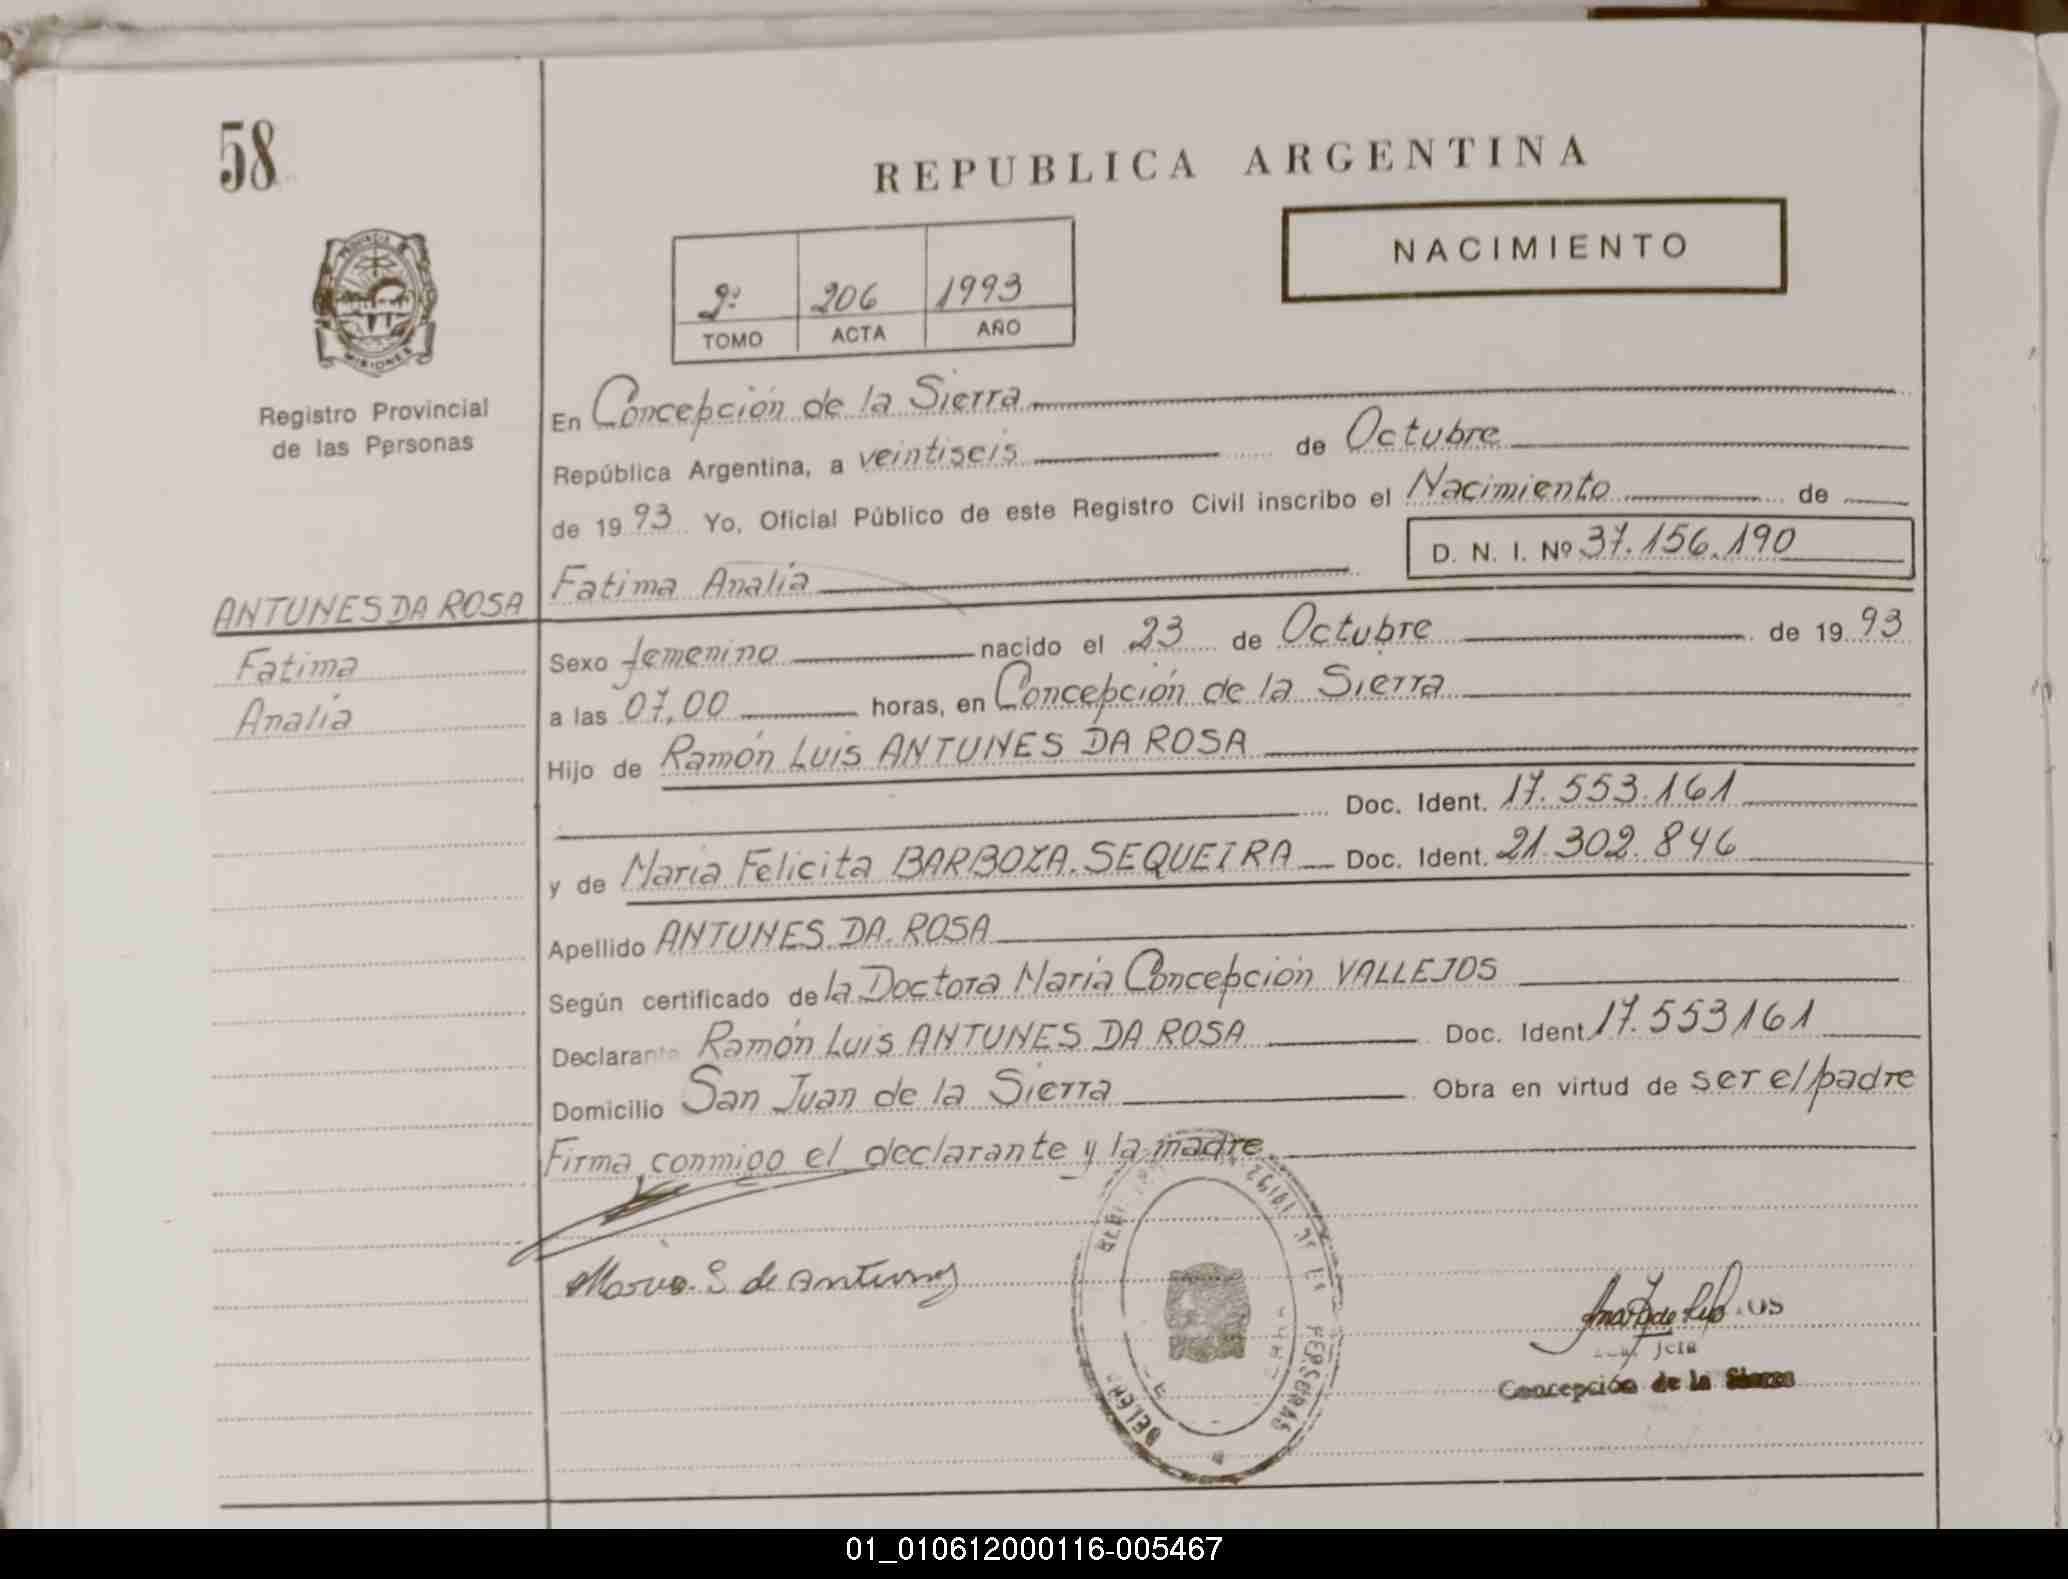 58
REPUBLICA ARGENTINA
NACIMIENTO
2º 206 1993
TOMO ACTA AÑO
PROVINCIA DE MISIONES
Registro Provincial
de las Personas
En Concepción de la Sierra
República Argentina, a veintiseis de Octubre
de 1993 Yo, Oficial Público de este Registro Civil inscribo el Nacimiento de
D. N. I. Nº 37.156.190
Fatima Analía
ANTUNES DA ROSA
Fatima
Analía
Sexo femenino nacido el 23 de Octubre de 1993
a las 07,00 horas, en Concepción de la Sierra
Hijo de Ramón Luis ANTUNES DA ROSA
Doc. Ident. 17.553.161
y de María Felicita BARBOZA SEQUEIRA Doc. Ident. 21.302.846
Apellido ANTUNES DA ROSA
Según certificado de la Doctora María Concepción VALLEJOS
Declarante Ramón Luis ANTUNES DA ROSA Doc. Ident. 17.553161
Domicilio San Juan de la Sierra Obra en virtud de ser el padre
Firma conmigo el declarante y la madre
S de Antunes
Concepción de la Sierra
01_010612000116-005467